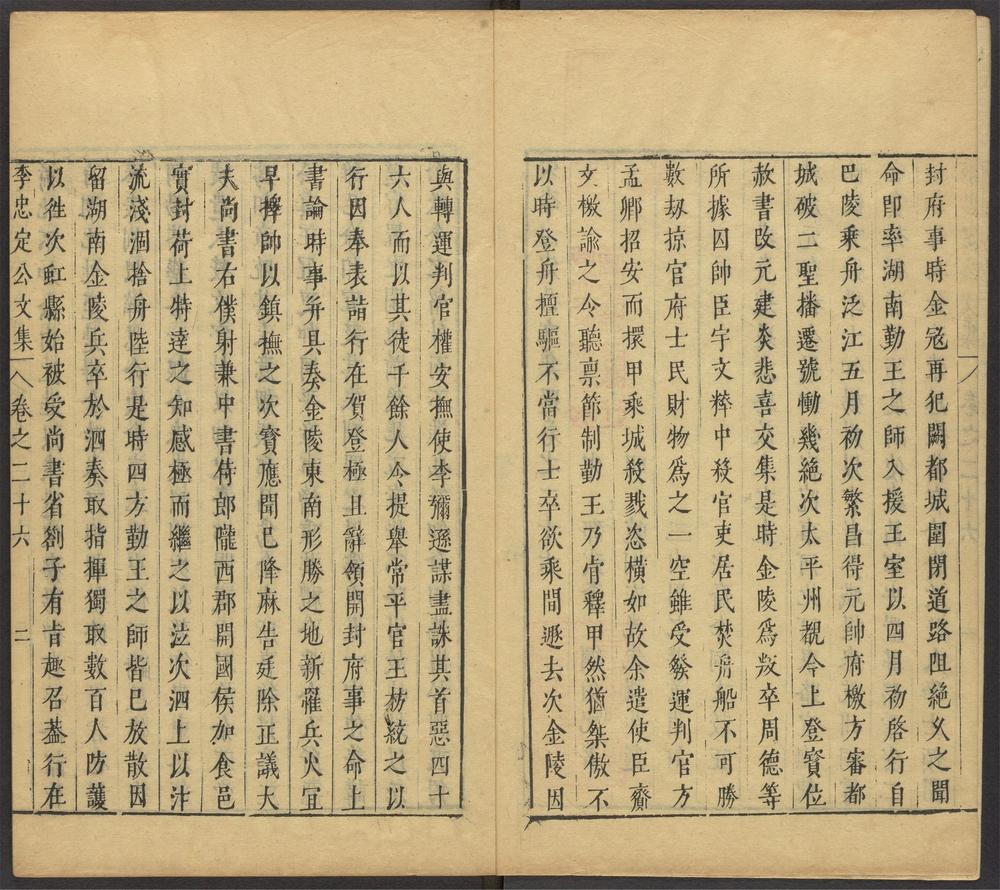 封府事時金冦再犯闕都城圍閉道路阻絶乆之聞
命即率湖南勤王之師入援王室以四月初啓行自
巴陵乗舟泛江五月初次繁昌得元帥府檄方審都
城破二聖播遷號慟幾絶次太平州覩今上登寳位
赦書改元建炎悲喜交集是時金陵爲叛卒周德等
所據囚帥臣宇文粹中殺官吏居民焚舟船不可勝
數刼掠官府士民財物爲之一空雖受發運判官方
孟卿招安而擐甲乗城殺戮恣橫如故余遣使臣齎
文檄諭之令聽禀節制勤王乃肯釋甲然猶桀傲不
以時登舟擅驅不當行士卒欲乘間遯去次金陵因
與轉運判官權安撫使李彌遜謀盡誅其首惡四十
六人而以其徒千餘人令提舉常平官王枋統之以
行因奉表詣行在賀登極且辭領開封府事之命上
書論時事并具奏金陵東南形勝之地新罹兵火冝
早擇帥以鎮撫之次寳應聞已降麻告廷除正議大
夫尚書右僕射兼中書侍郎隴西郡開國侯加食邑
實封荷上特達之知感極而繼之以泣次泗上以汴
流淺涸捨舟陸行是時四方勤王之師皆已放散因
留湖南金陵兵卒於泗奏取指揮獨取數百人防護
以徃次虹縣始被受尚書省劄子有㫖趣召葢行在
李忠定公文集 卷之二十六 二